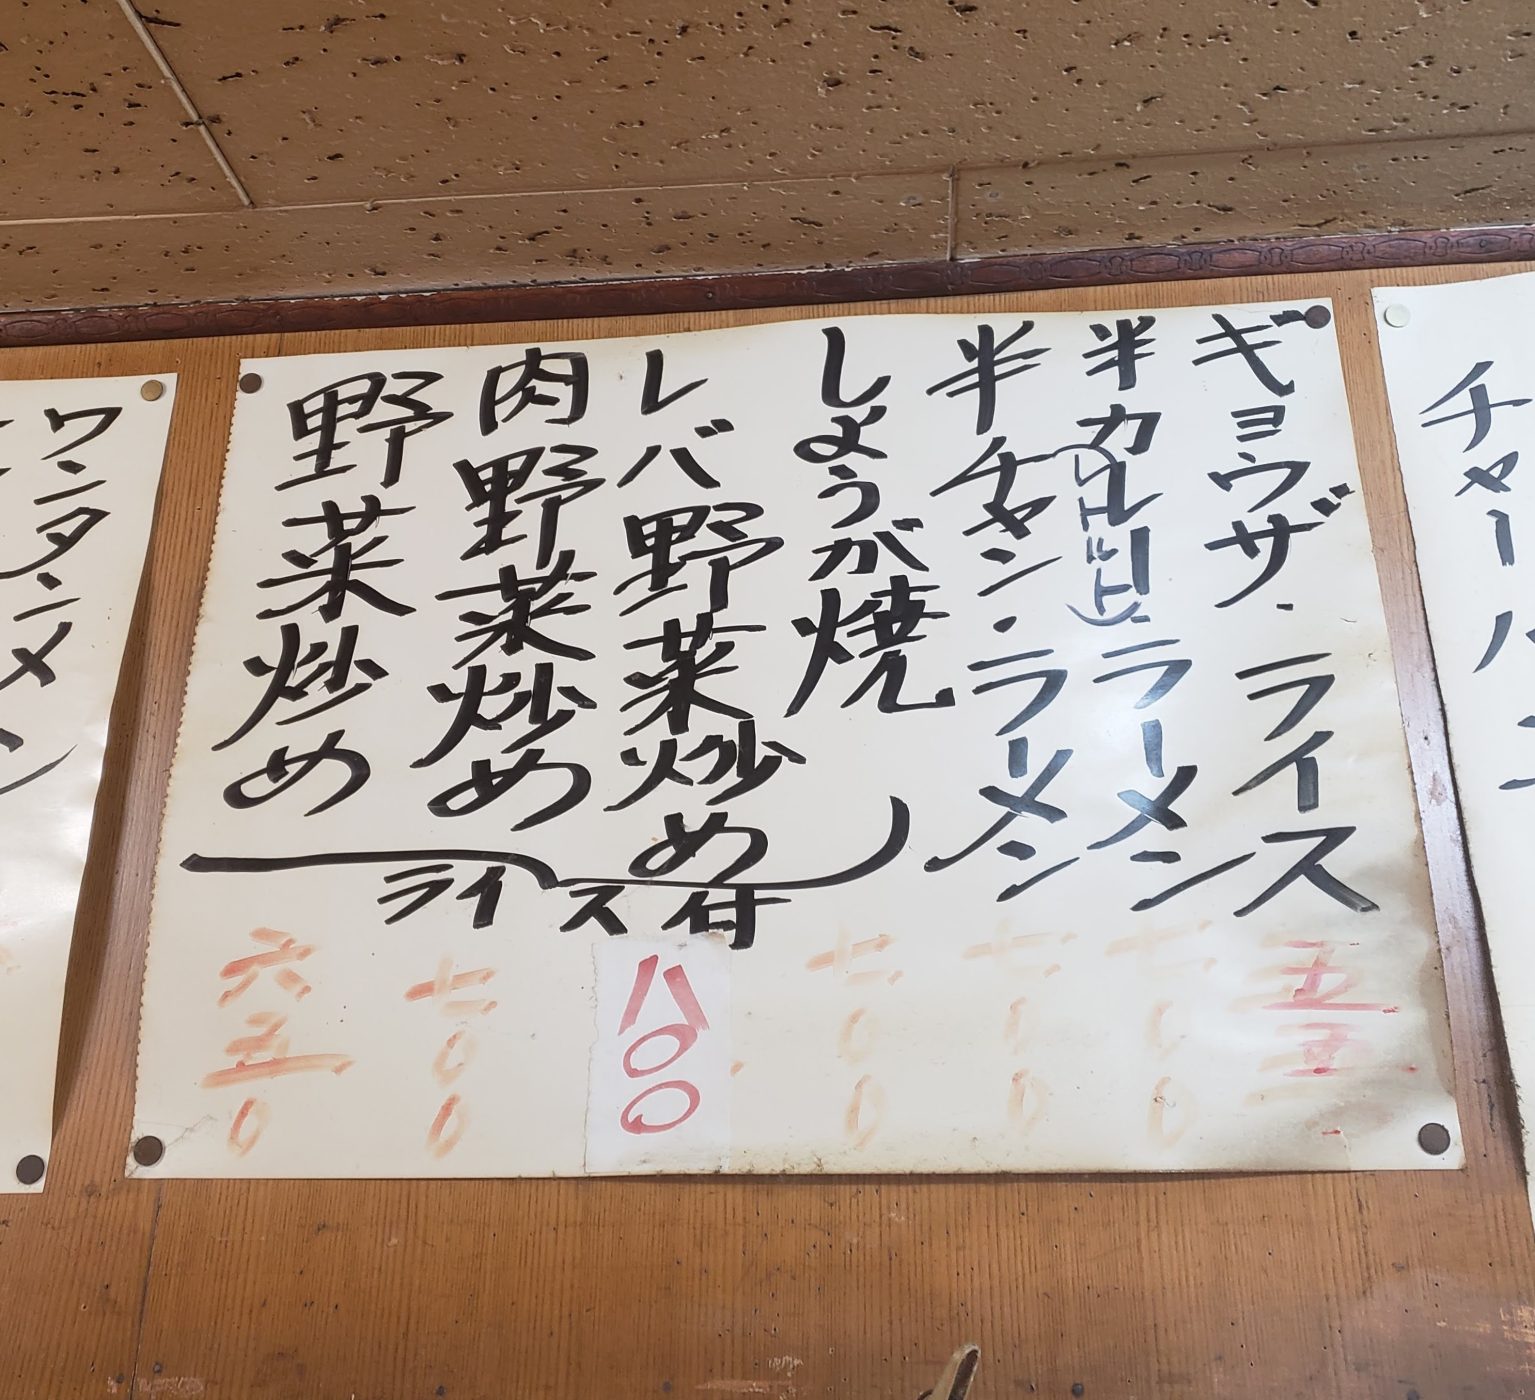 チャーハン
ギョウザ・ライス
五五
半カレー・ラーメン
(レトルト)
半チャン・ラーメン
七〇〇
七〇〇
しょうが焼
七〇〇
レバ野菜炒め
八〇〇
肉野菜炒め
七〇〇
野菜炒め
六五〇
ライス付
ワンタンメン